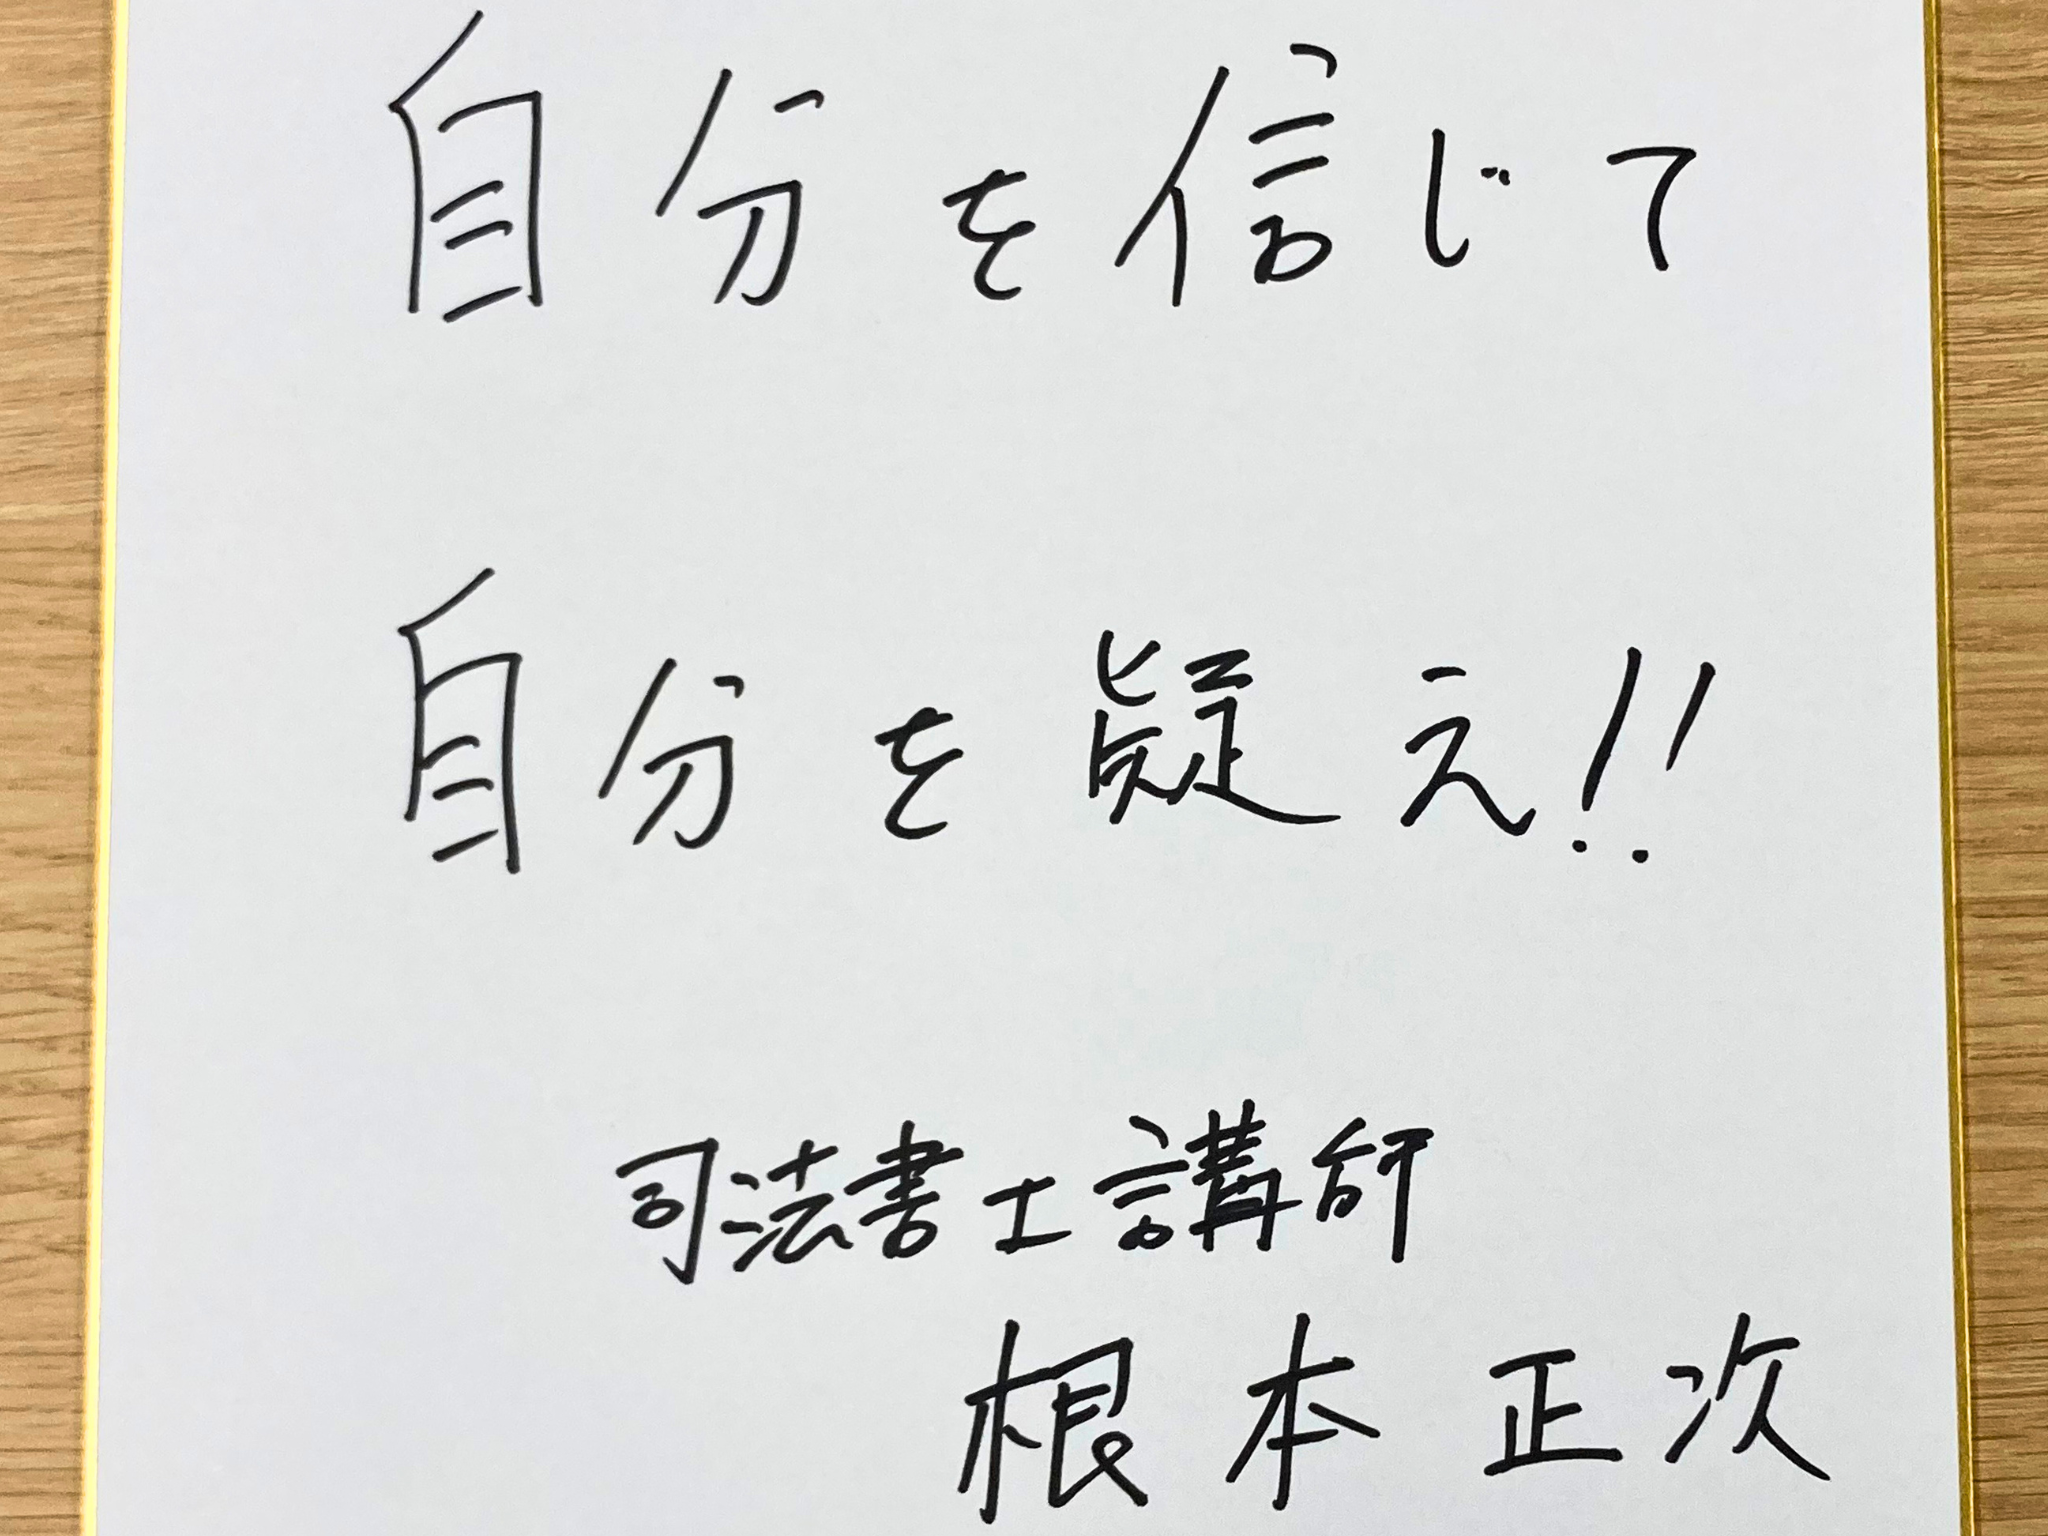 自分を信じて
自分を疑え!!
司法書士講師
根本正次